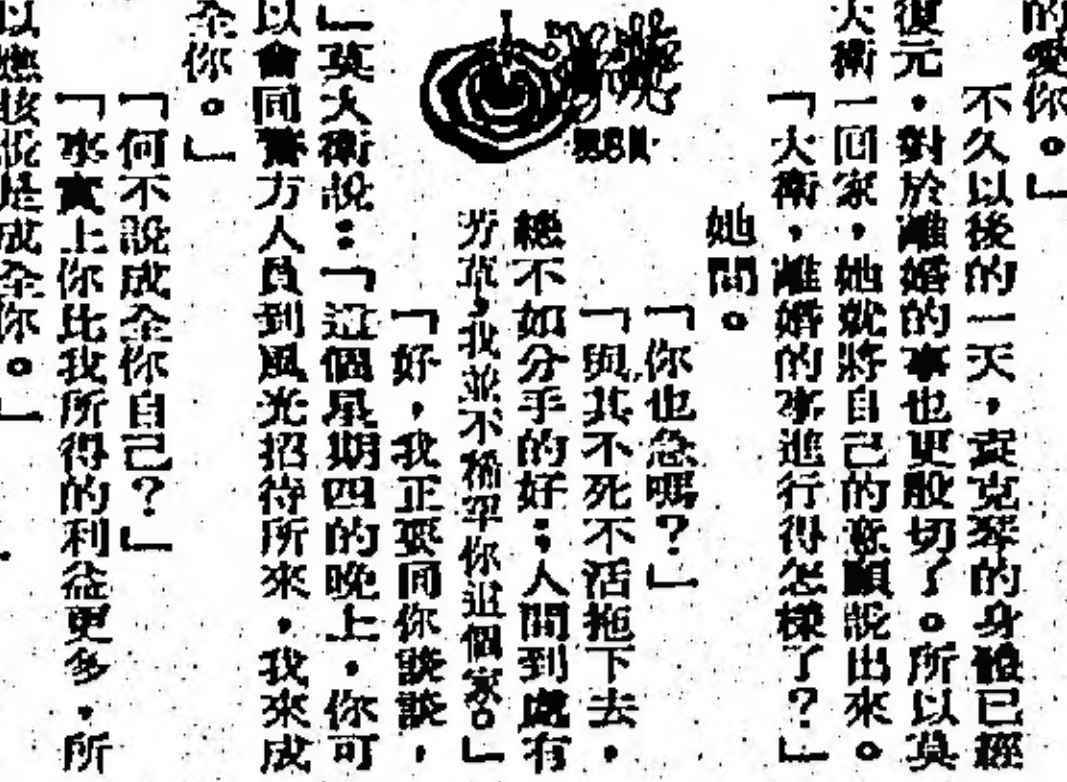 的愛你。」
不久以後的一天，袁克琴的身體已經
復元，對於離婚的事也更殷切了。所以莫
大衛一回家，她就將自己的意願說出來。
「大衛，離婚的事進行得怎樣了？」
她問。
「你也急嗎？」
「與其不死不活拖下去，
總不如分手的好；人間到處有
芳草，我並不稀罕你這個家。」
「好，我正要同你談談，
」莫大衛說：「這個星期四的晚上，你可
以會同警方人員到風光招待所來，我來成
全你。」
「何不說成全你自己？」
「事實上你比我所得的利益更多，所
以應該說是成全你。」